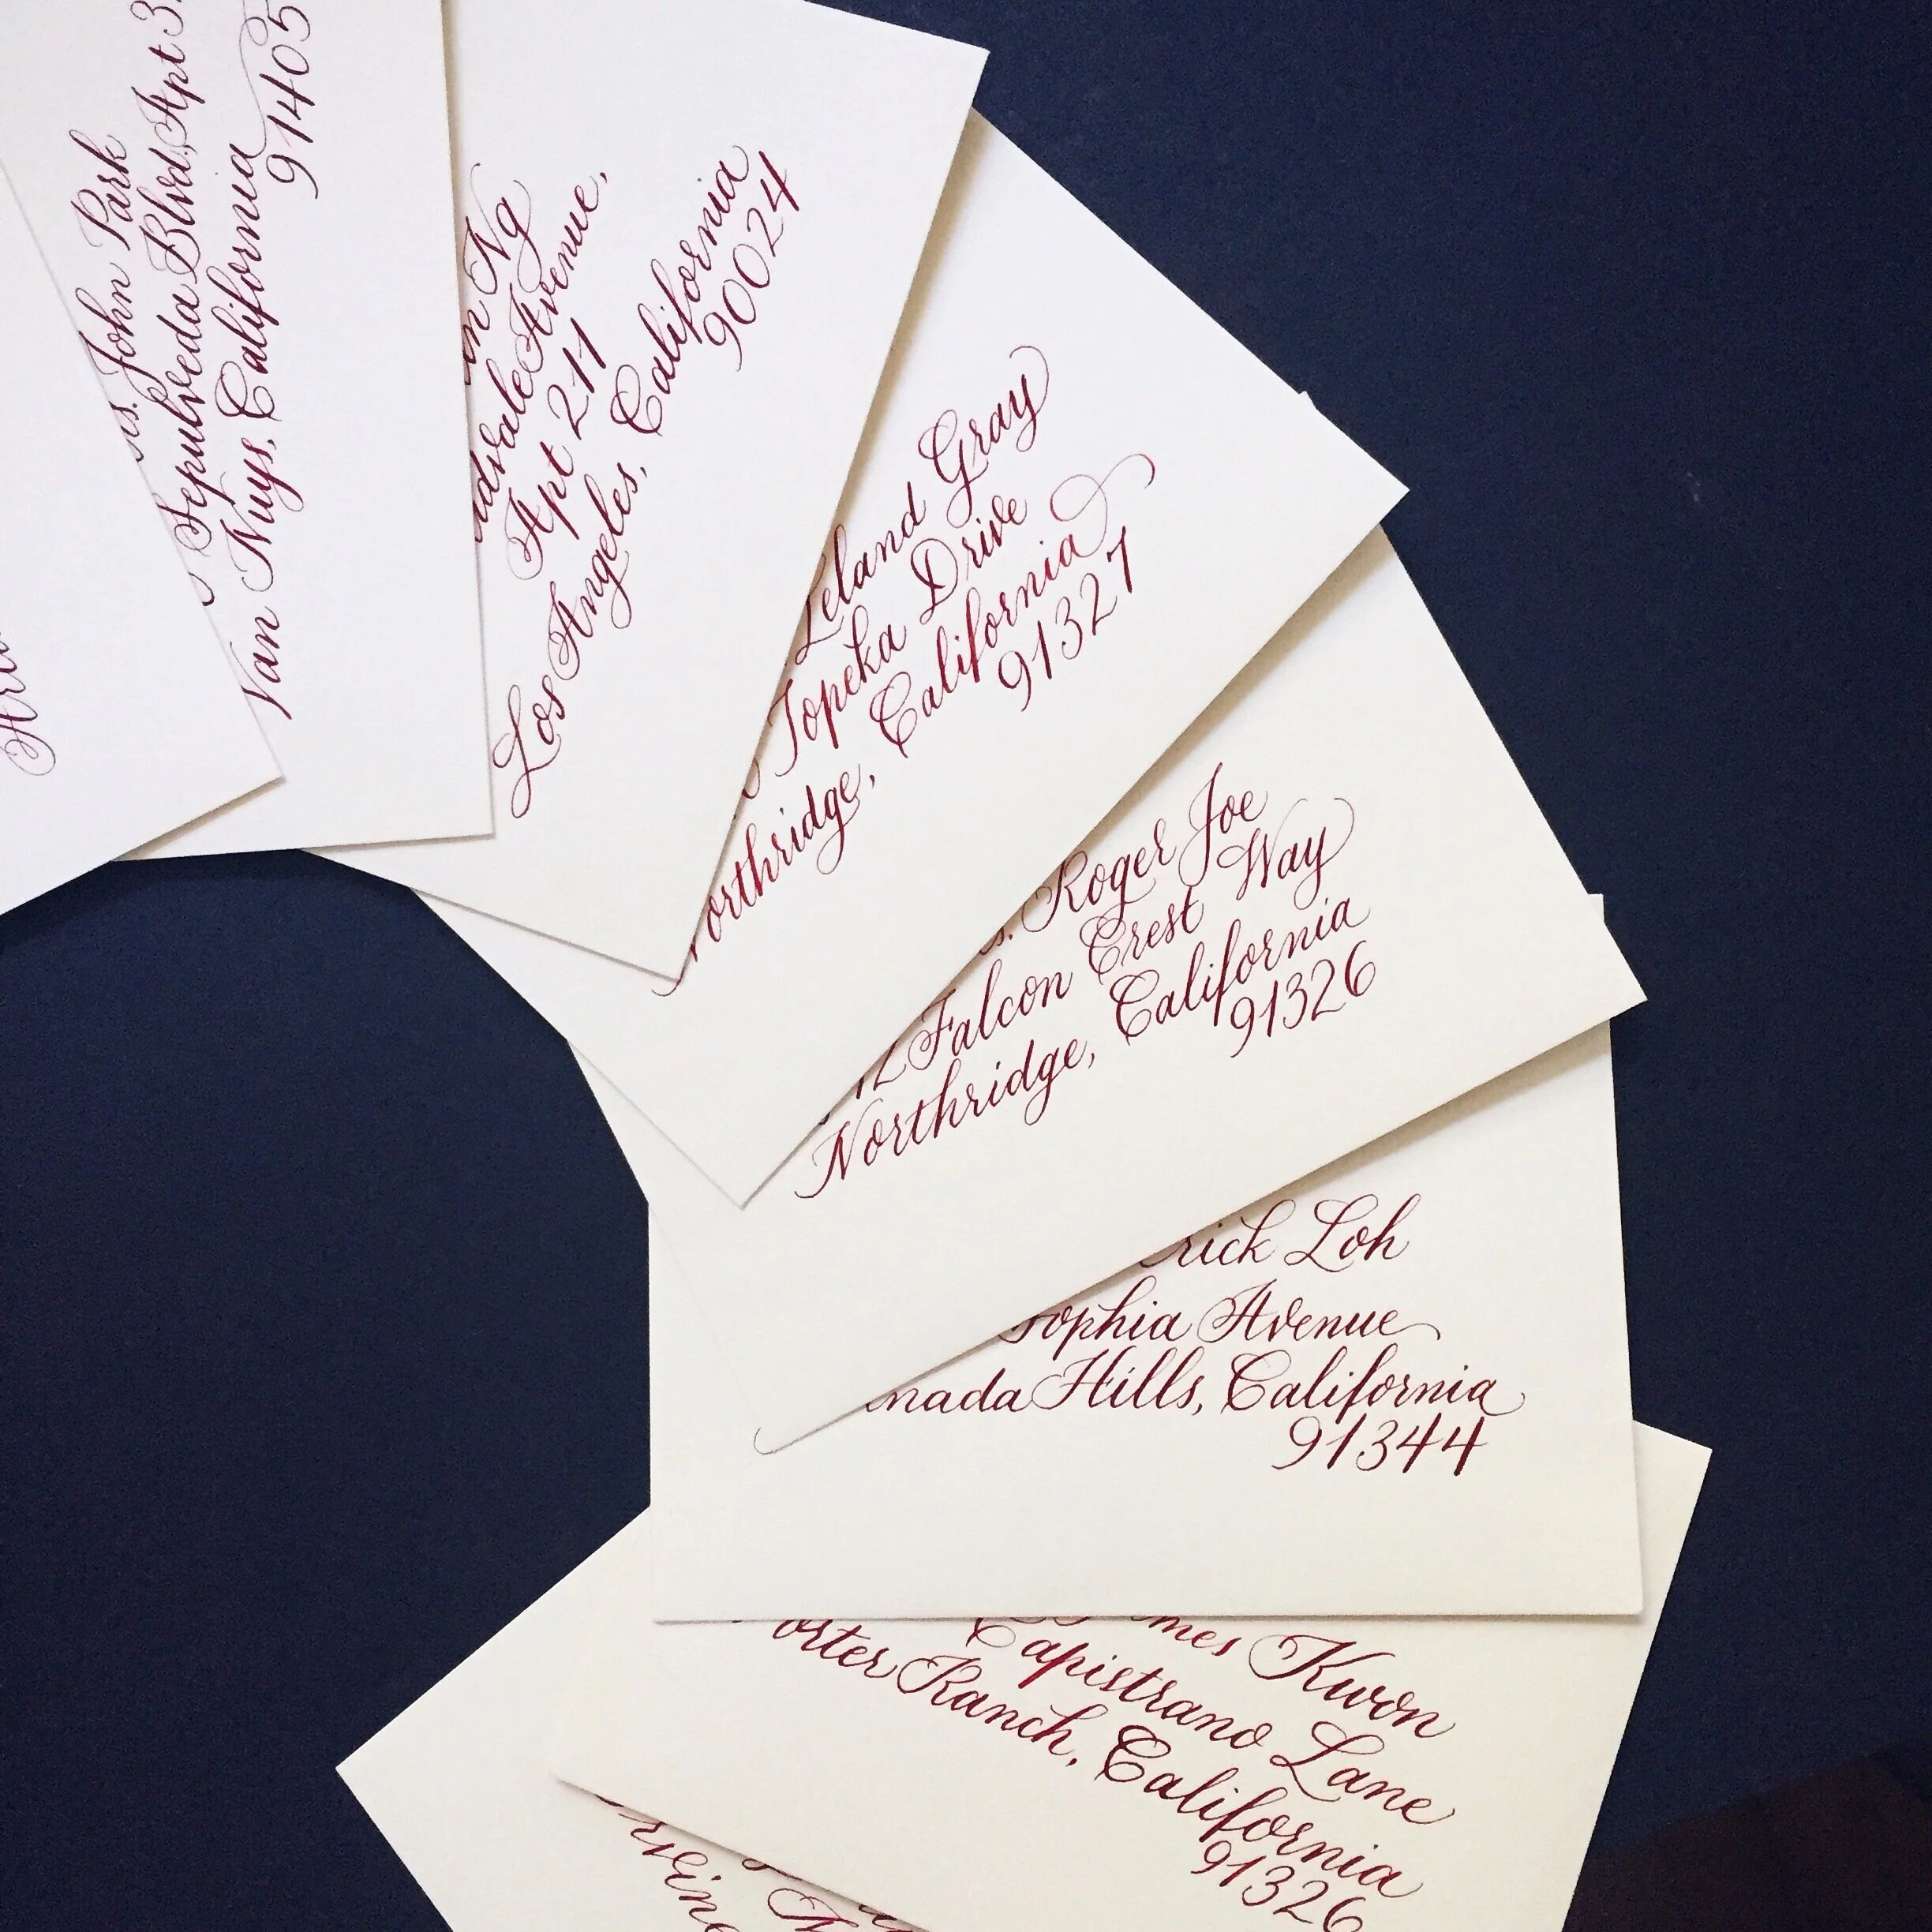 John Park
Sepulveda Blvd, Apt
Van Nuys, California
91405
Ng
Avenue,
Apt 211
Los Angeles, California
90024
Leland Gray
Topeka Drive
California
91327
Roger Joe
Falcon Crest Way
Northridge, California
91326
Loh
Avenue
Hills, California
91344
Kwon
Capistrano Lane
Ranch, California
91326